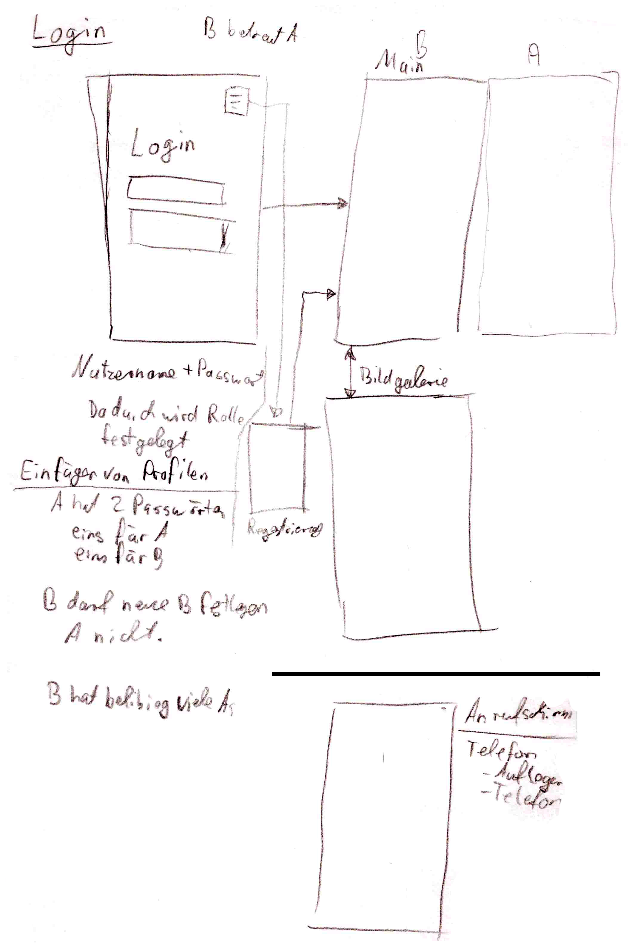 Login
B betreut A
B
Main
A
Login
Nutzername + Passwort
Dadurch wird Rolle
festgelegt
Bildgalerie
Einfügen von Profilen
A hat 2 Passwörter
eins für A
eins für B
Registrierung
B darf neue B festlegen
A nicht.
B hat belibieg viele As
Anrufschirm
Telefon
- Auflegen
- Telefon